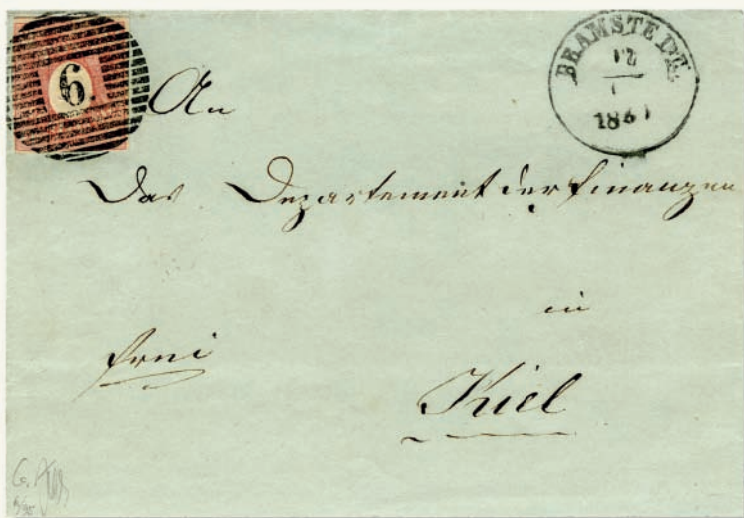 6
BRAMSTEDT.
12
1
18
An
Das Departement der Finanzen
in
frei
Kiel